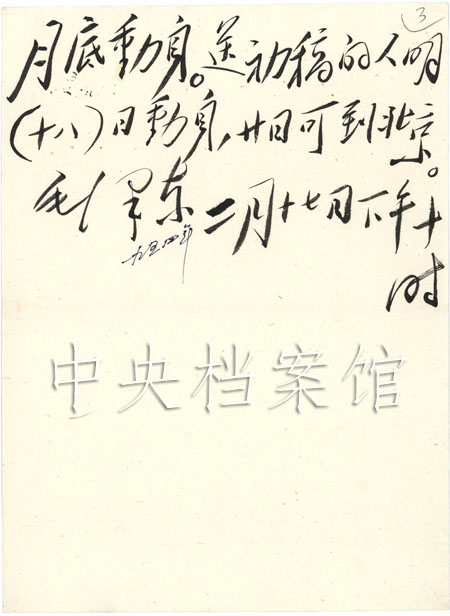 3
月底動身。送初稿的人明
（十八）日動身，廿日可到北京。
毛澤东 二月十七日下午十
时
一九五四年
中央档案馆